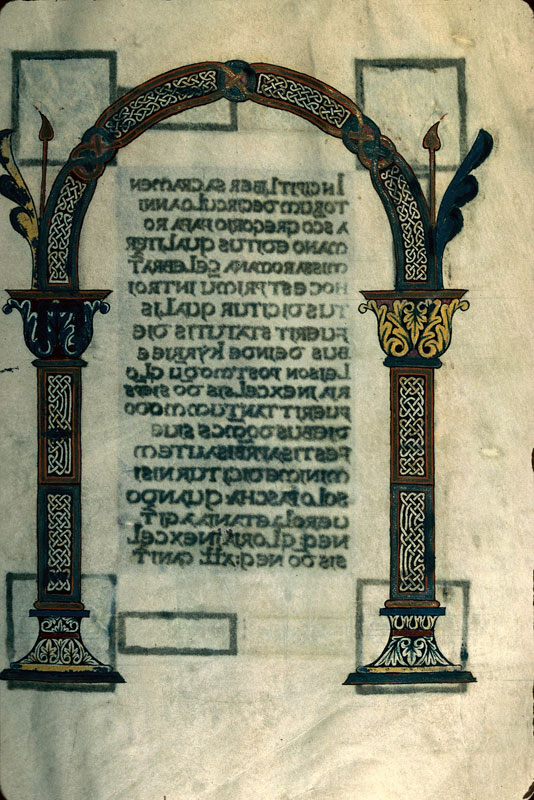 INCIPIT LIBER SACRAMEN
TORUM DE CIRCULO ANNI
A SCO GREGORIO PAPA RO
MANO EDITUS QUALITER
MISSA ROMANA CELEBRAT
HOC EST PRIMU INTROI
TUS DICITUR QUALIS
FUERIT STATUTIS DIE
BUS DEINDE KYRIE E
LEISON POSTMODU GLO
RIA IN EXCELSIS DO SI EPS
FUERIT TANTUMMODO
DIEBUS SIUE
FESTIS A PRBIS AUTEM
MINIME DICITUR NISI
SOLO PASCHA QUANDO
UERO LAETANIA AGIT
NEQ: GLORIA IN EXCEL
SIS DO NEQ: ALL CANIT